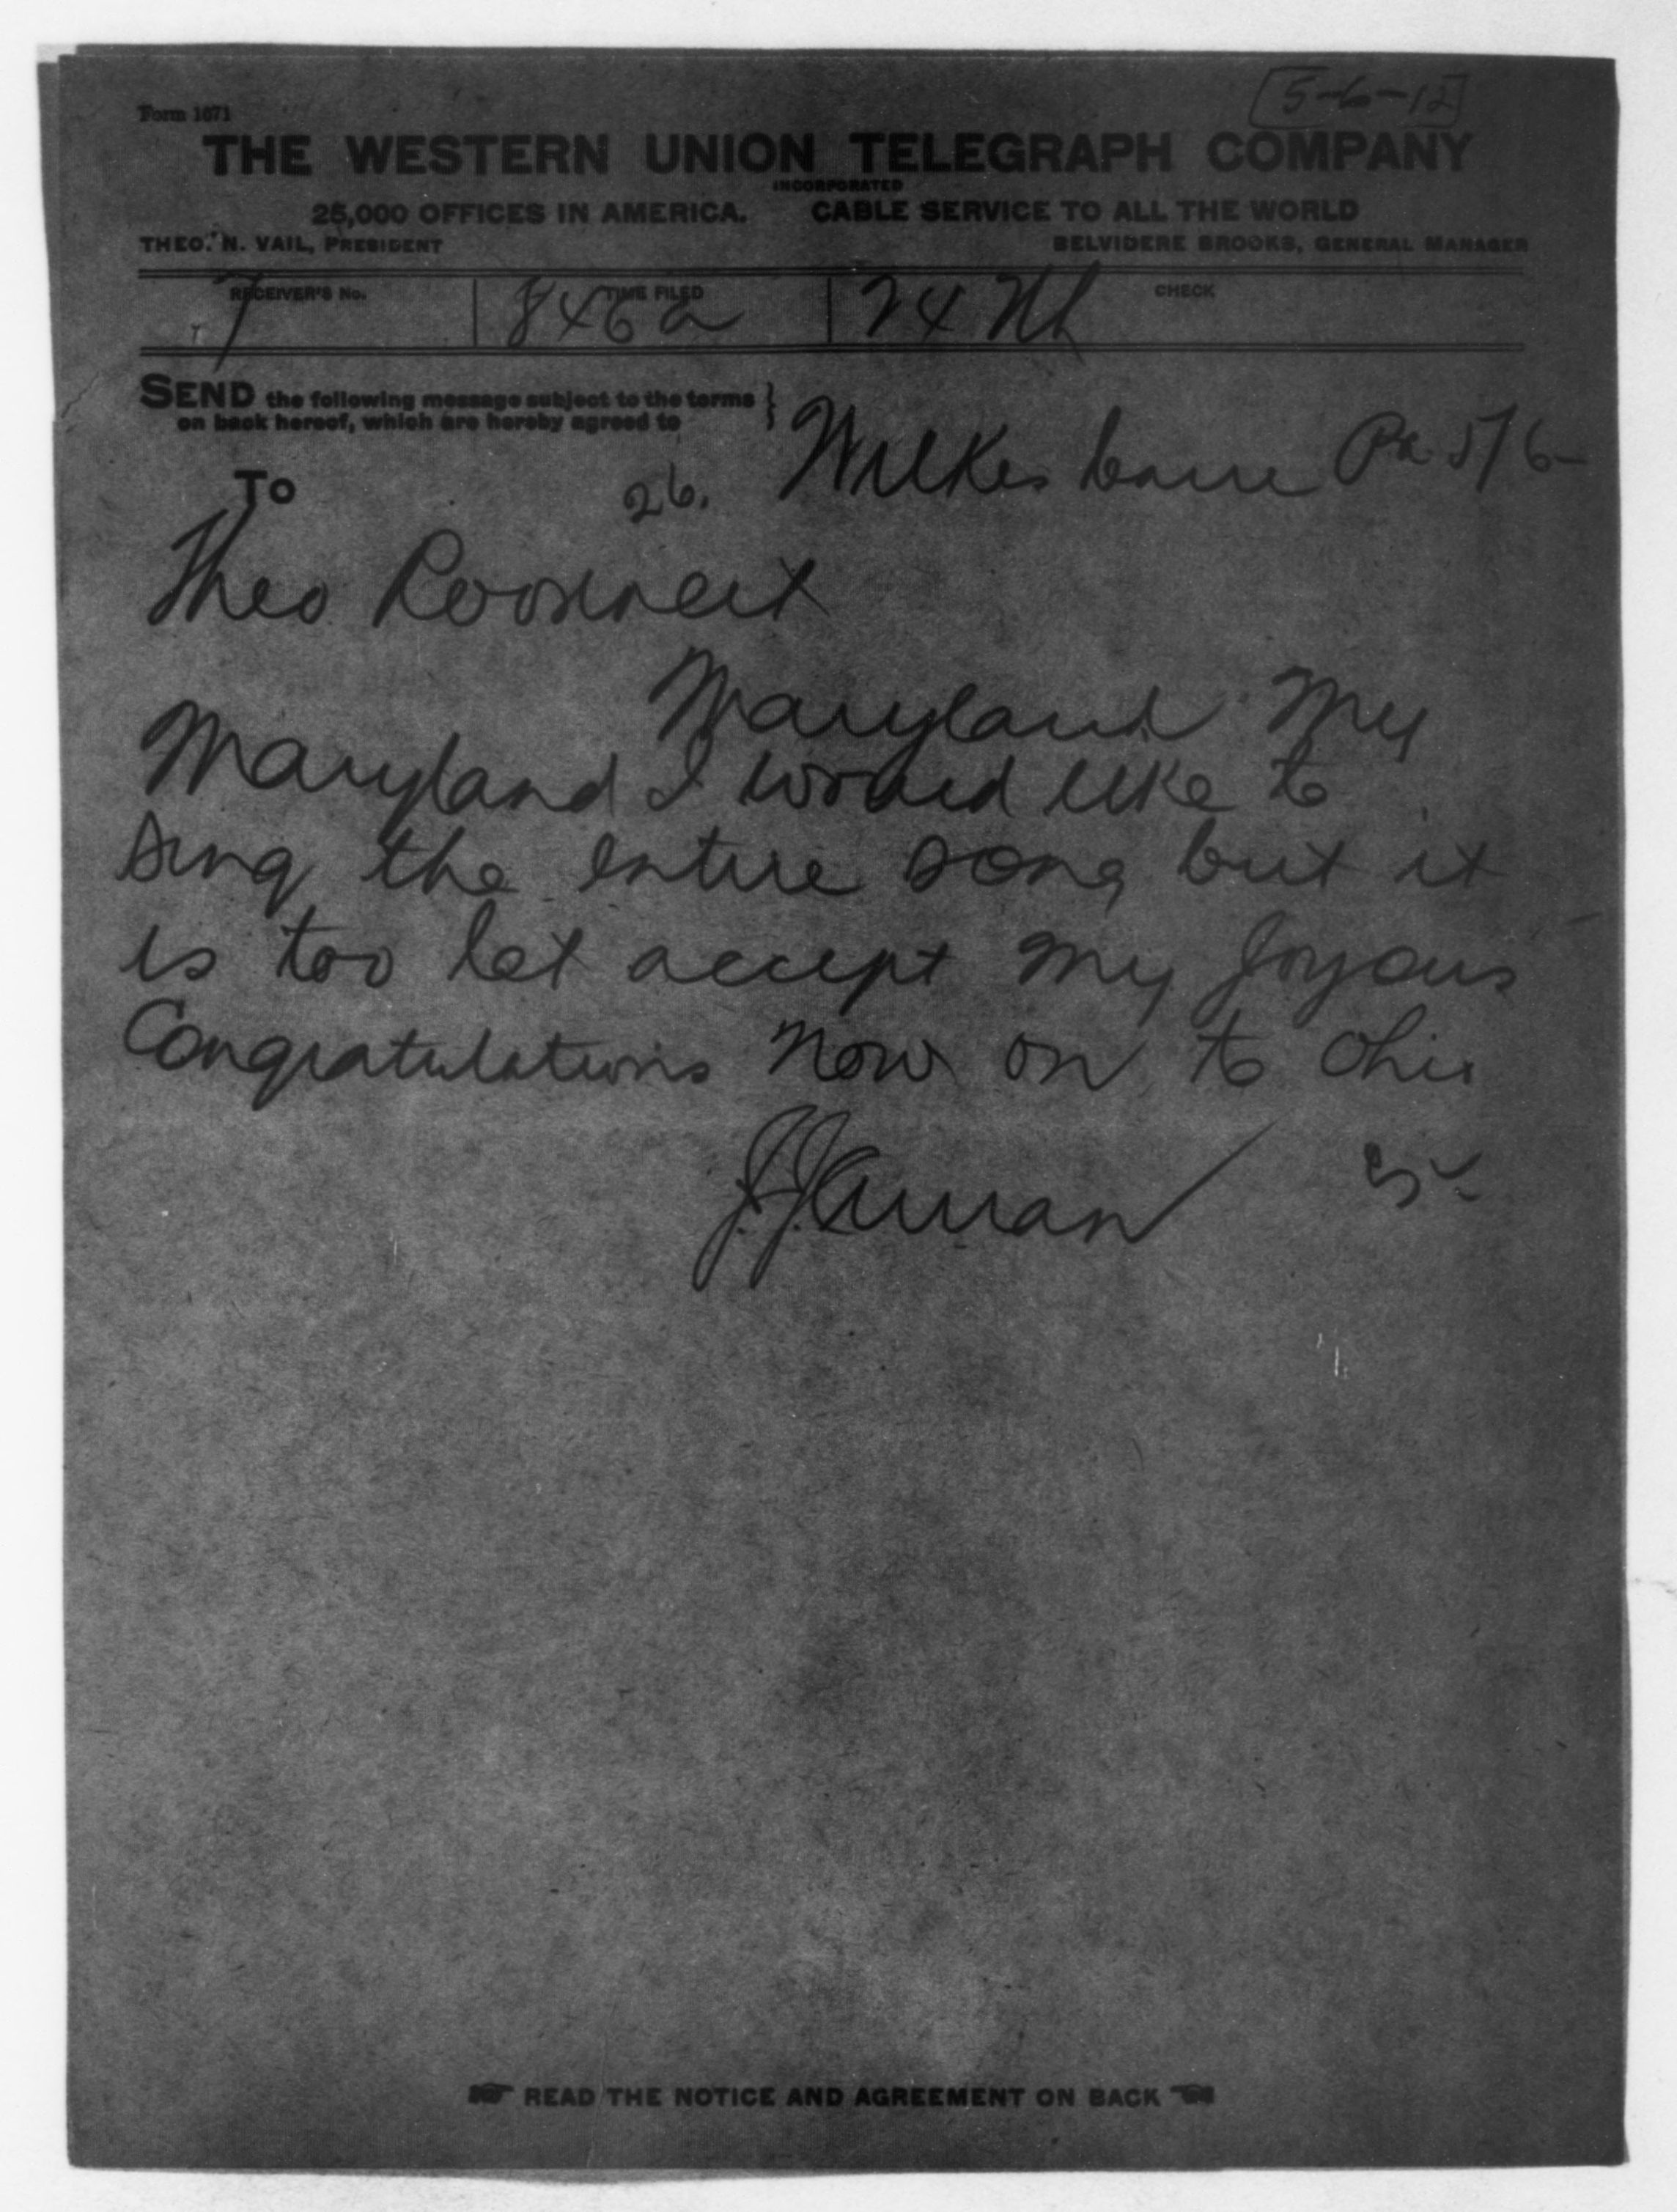 [5-6-12]
Form 1671
THE WESTERN UNION TELEGRAPH COMPANY
INCORPORATED
25,000 OFFICES IN AMERICA. CABLE SERVICE TO ALL THE WORLD
THEO. N. VAIL, PRESIDENT BELVIDERE BROOKS, GENERAL MANAGER
RECEIVER'S No. TIME FILED CHECK
7 846a 24 Nh
SEND the following message subject to the terms
on back hereof, which are hereby agreed to
26. Wilkes barre Pa 5/6-
To
Theo Roosevelt
Maryland My
Maryland I would like to
sing the entire song but it
is too let accept my joyous
Congratulations now on to Ohio
J. J. Curran
READ THE NOTICE AND AGREEMENT ON BACK